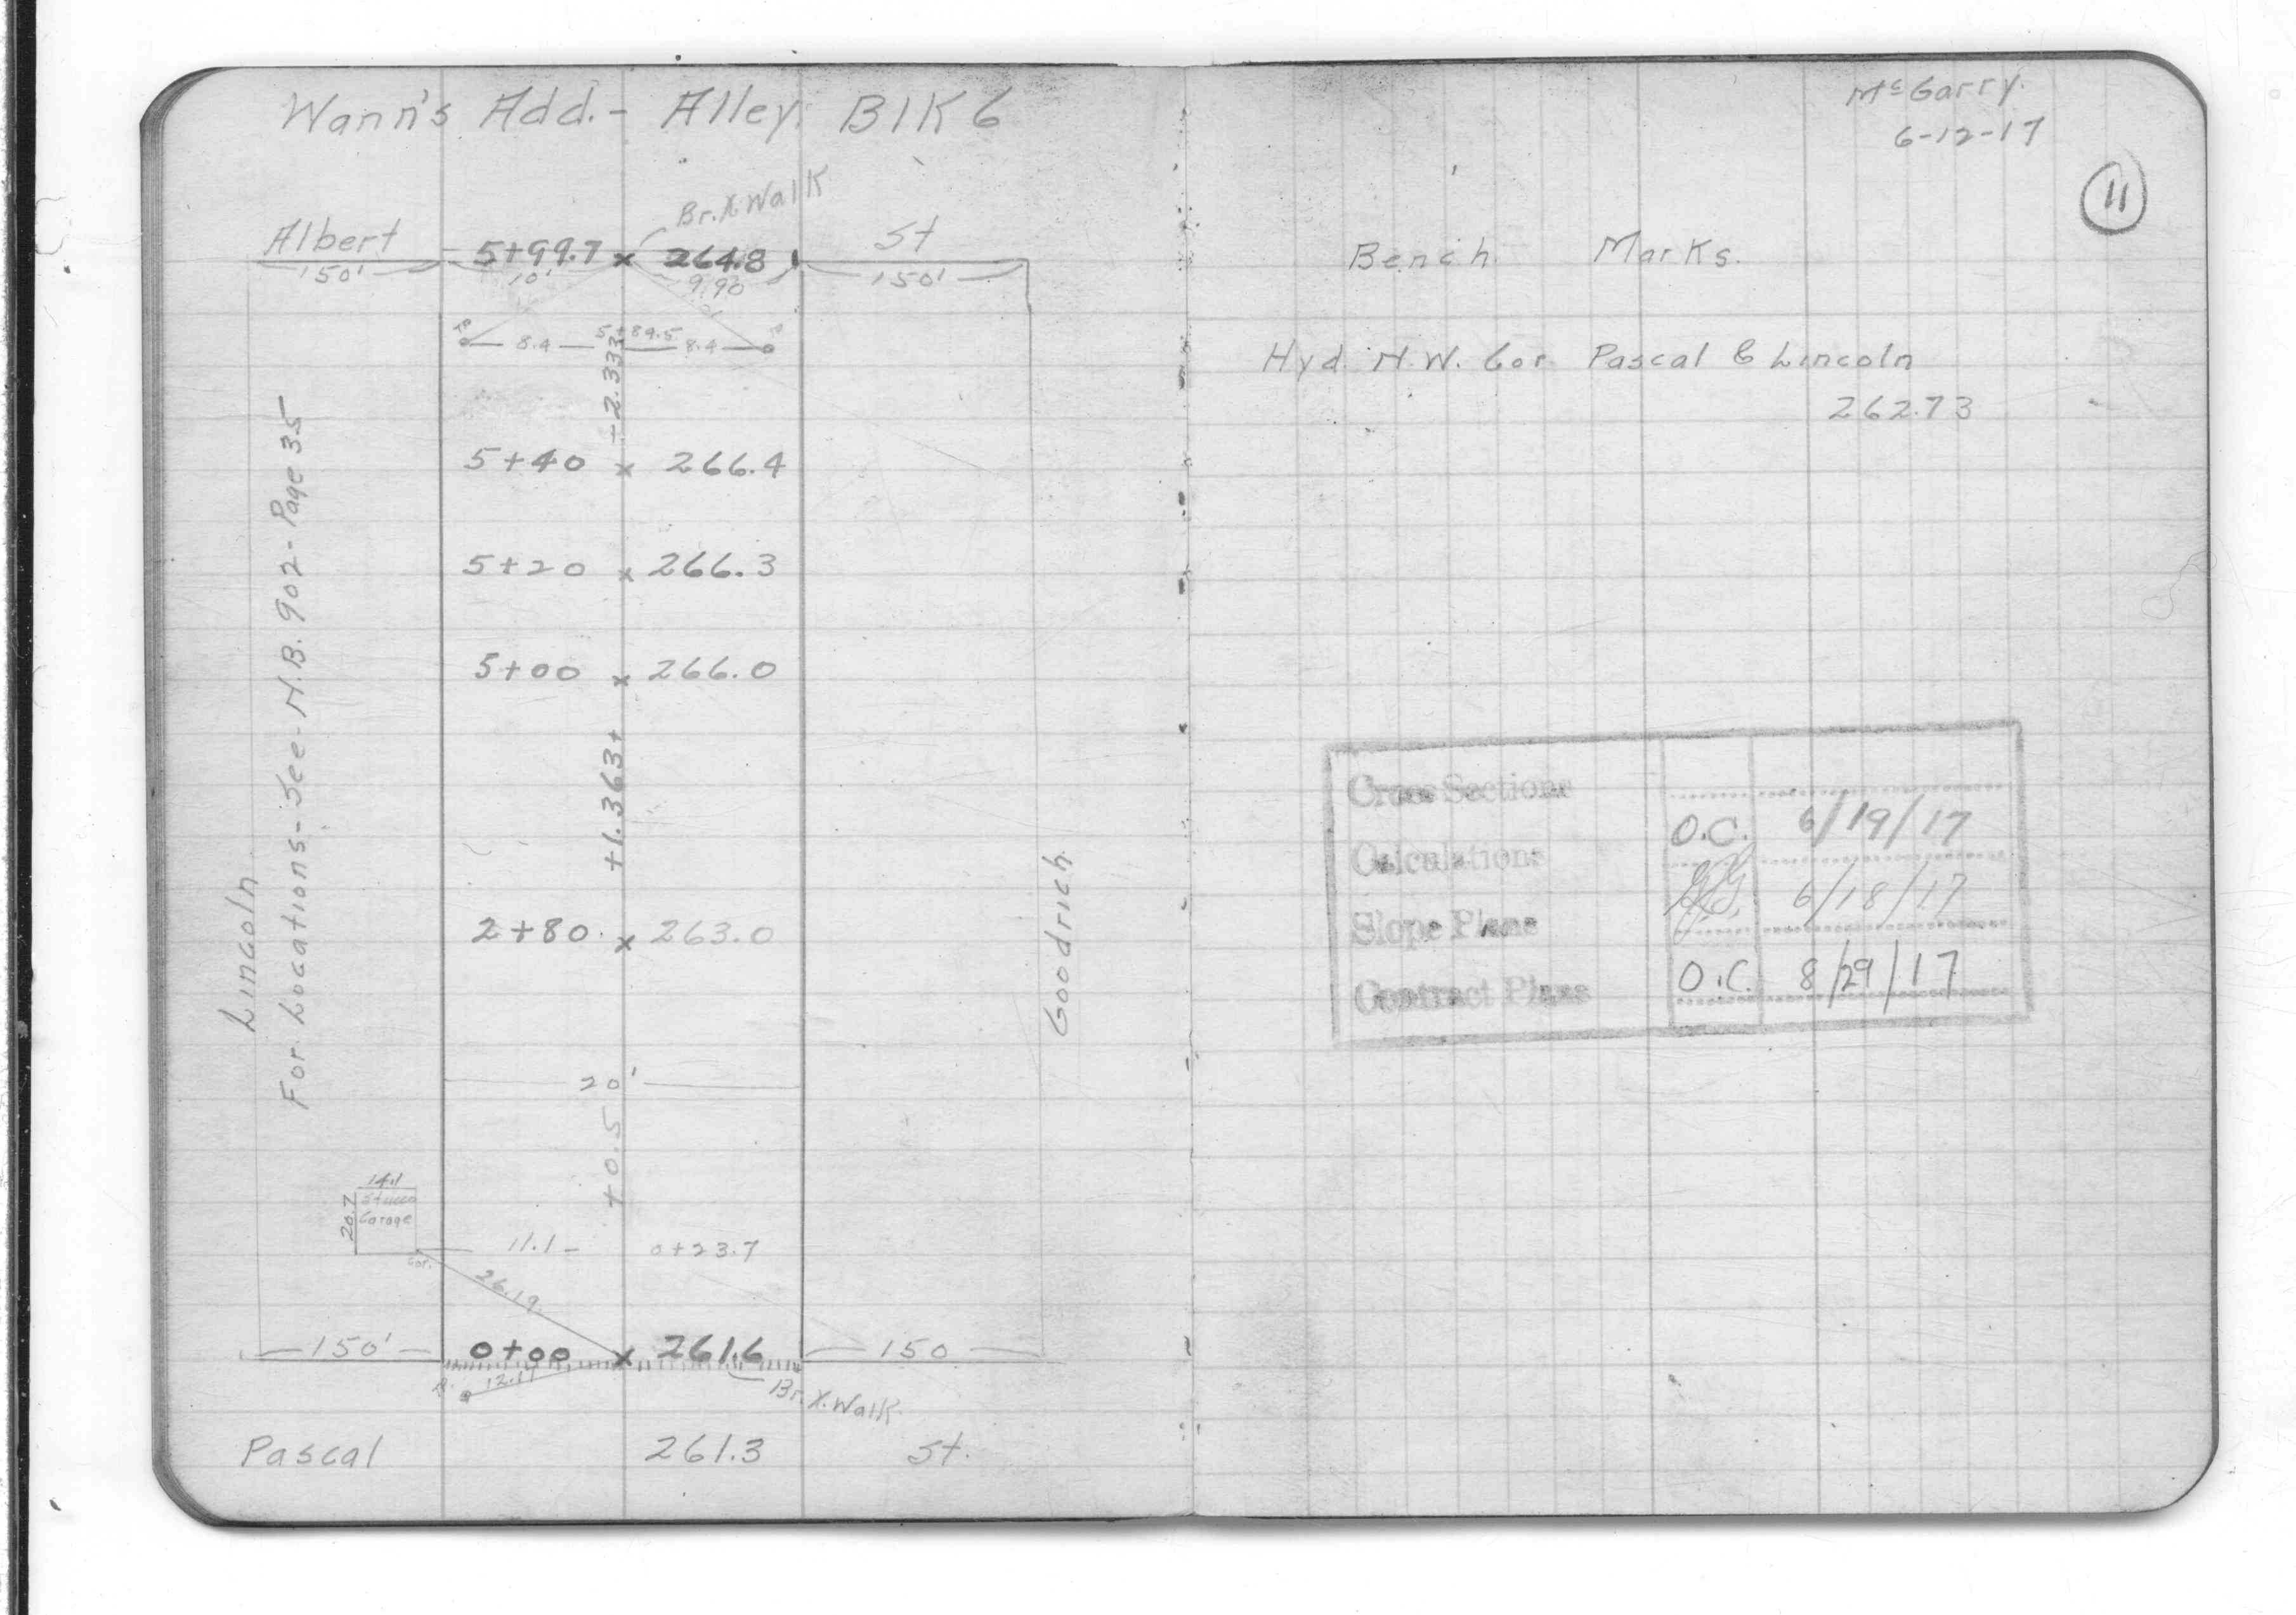 Wann's Add.- Alley. Blk 6
Br. X Walk
Albert 5+99.7 x 264.8 St
150' 10' 9.90 150'
8.4 5+89.5 8.4
-2.333+
5+40 x 266.4
5+20 x 266.3
5+00 x 266.0
+1.363+
2+80 x 263.0
20'
+0.50
Lincoln
For Locations - See - N.B. 902 - Page 35
Goodrich
14.1
20.7
Stucco
Garage
Cor.
11.1 - 0+23.7
26.19
150' 0+00 x 261.6 150
12.17
Br. X. Walk
Pascal 261.3 St.
McGarry.
6-12-17
11
Bench Marks.
Hyd. N.W. Cor. Pascal & Lincoln
262.73
Cross Sections
Calculations O.C. 6/19/17
Slope Plans 6/18/17
Contract Plans O.C. 8/29/17